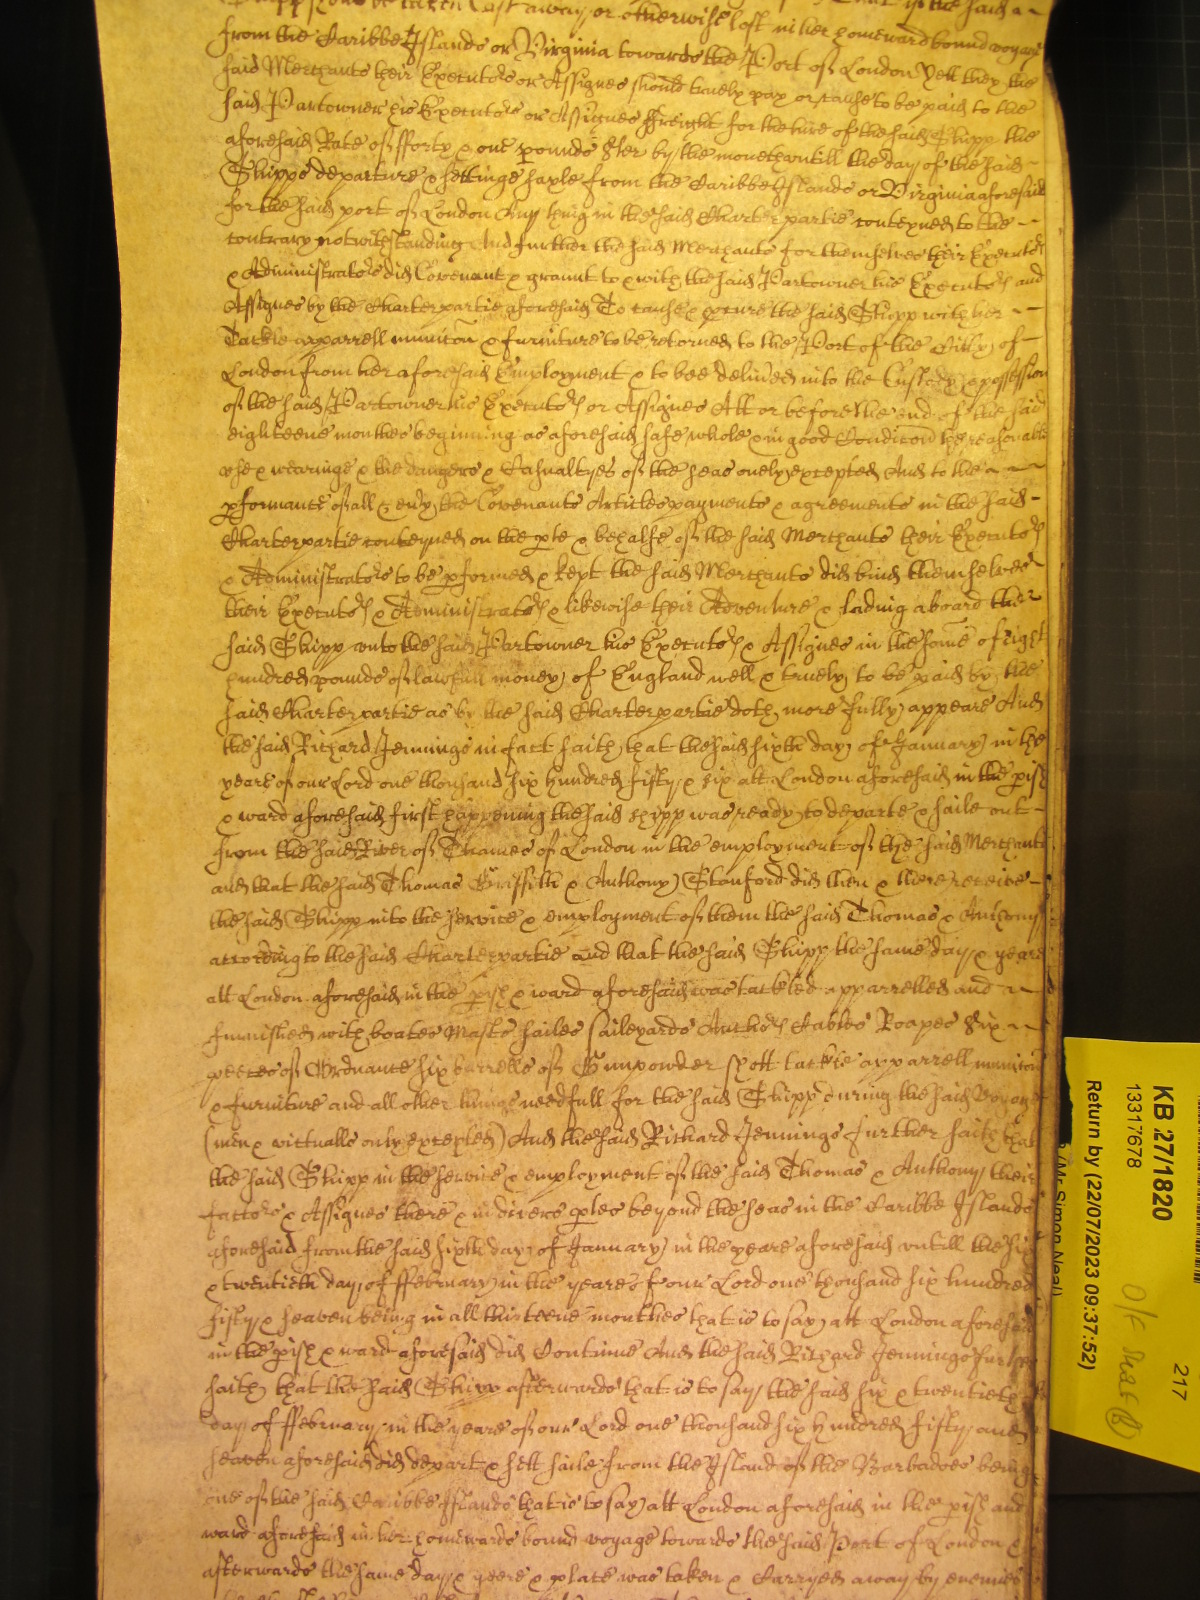 Shipp should be taken Cast away or otherwise lost in her homeward bound voyage
from the Caribbe Islands or Virginia towards the Port of London Yett they the
said Merchants their Executors or Assignes should truely pay or cause to be paid to the
said Partowner his Executors or Assignes ffreight for the hire of the said Shipp the
aforesaid Rate of fforty & one pounds Ster by the moneth untill the day of the said
Shipps departure & settinge sayle from the Caribbe Islands or Virginia aforesaid
for the said port of London Any thing in the said Charterpartie conteyned to the
contrary notwithstanding And further the said Merchants for themselves their Executors
& Administrators did Covenant & graunt to & with the said Partowner his Executors and
Assignes by the Charterpartie aforesaid To cause & pcure the said Shipp with her
Tackle apparrell municon & furniture to be retorned to the Port of the Citty of
London from her aforesaid Employment & to bee delived into the Custody & possession
of the said Partowner his Executors or Assignes Att or before the end of the said
eighteene monthes beginning as aforesaid safe whole & in good Condicon the reasonable
use & wearinge & the dangers & Casualtyes of the seas onely excepted And to the
pformance of all & evy the Covenants Articles payments & agreements in the said
Charterpartie conteyned on the pte & behalfe of the said Merchants their Executors
& Administrators to be pformed & kept the said Merchants did bind themselves
their Executors & Administrators & likewise their Adventure & lading aboard the
said Shipp unto the said Partowner his Executors & Assignes in the some of eight
hundred pounds of lawfull money of England well & truely to be paid by the
said Charterpartie as by the said Charterpartie doth more fully appeare And
the said Richard Jennings in fact saith that the said sixth day of January in the
yeare of our Lord one thousand six hundred fifty & six att London aforesaid in the pish
& ward aforesaid first happening the said shipp was ready to departe & saile out
from the said River of Thames of London in the employment of the said Merchants
and that the said Thomas Griffith & Anthony Stanford did then & there receive
the said Shipp into the service & employment of them the said Thomas & Anthony
according to the said Charterpartie and that the said Shipp the same day & yeare
att London aforesaid in the pish & ward aforesaid was tackled apparrelled and
furnished with boates Masts sailes saileyards Anchors Cables Roapes Six
peeces of Ordnance six barrells of Gunpowder shott tackle apparrell municon
& furniture and all other things needfull for the said Shipp during the said Voyage
(men & victualls only excepted) And the said Richard Jennings further saith that
the said Shipp in the service & employment of the said Thomas & Anthony their
factors & Assignes there & in divers ptes beyond the seas in the Caribbe Islands
aforesaid from the said sixth day of January in the yeare aforesaid untill the six
& twentieth day of ffebruary in the yeare of our Lord one thousand six hundred
fifty & seaven being in all thirteene monthes that is to say att London aforesaid
in the pish & ward aforesaid did Continue And the said Richard Jennings further
saith that the said Shipp afterwards that is to say the said six & twentieth
day of ffebruary in the yeare of our Lord one thousand six hundred fifty and
seaven aforesaid did depart & sett saile from the Island of the Barbadoes being
one of the said Caribbe Islands that is to say att London aforesaid in the pish and
ward aforesaid in her homewards bound voyage towards the said Port of London &
afterwards the same day & yeere & place was taken & Carryed away by enemies
KB 27/1820
13317678
Return by (22/07/2023 09:37:52)
Mr Simon Neal
217